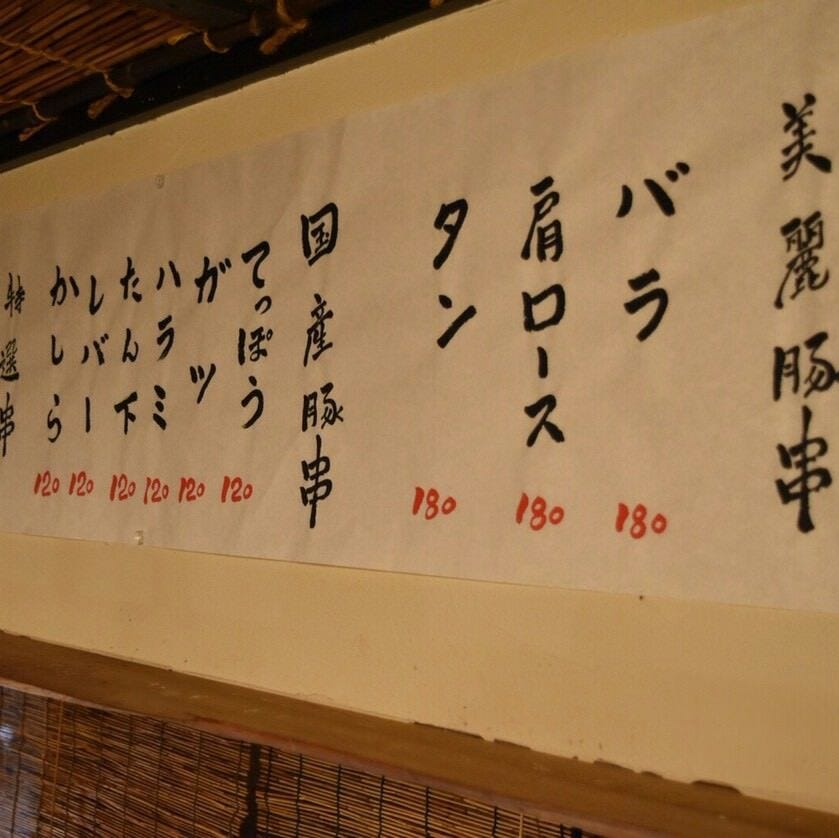 美麗豚串
バラ 180
肩ロース 180
タン 180
国産豚串
てっぽう 120
ガツ 120
ハラミ 120
たん下 120
レバー 120
かしら 120
特選串